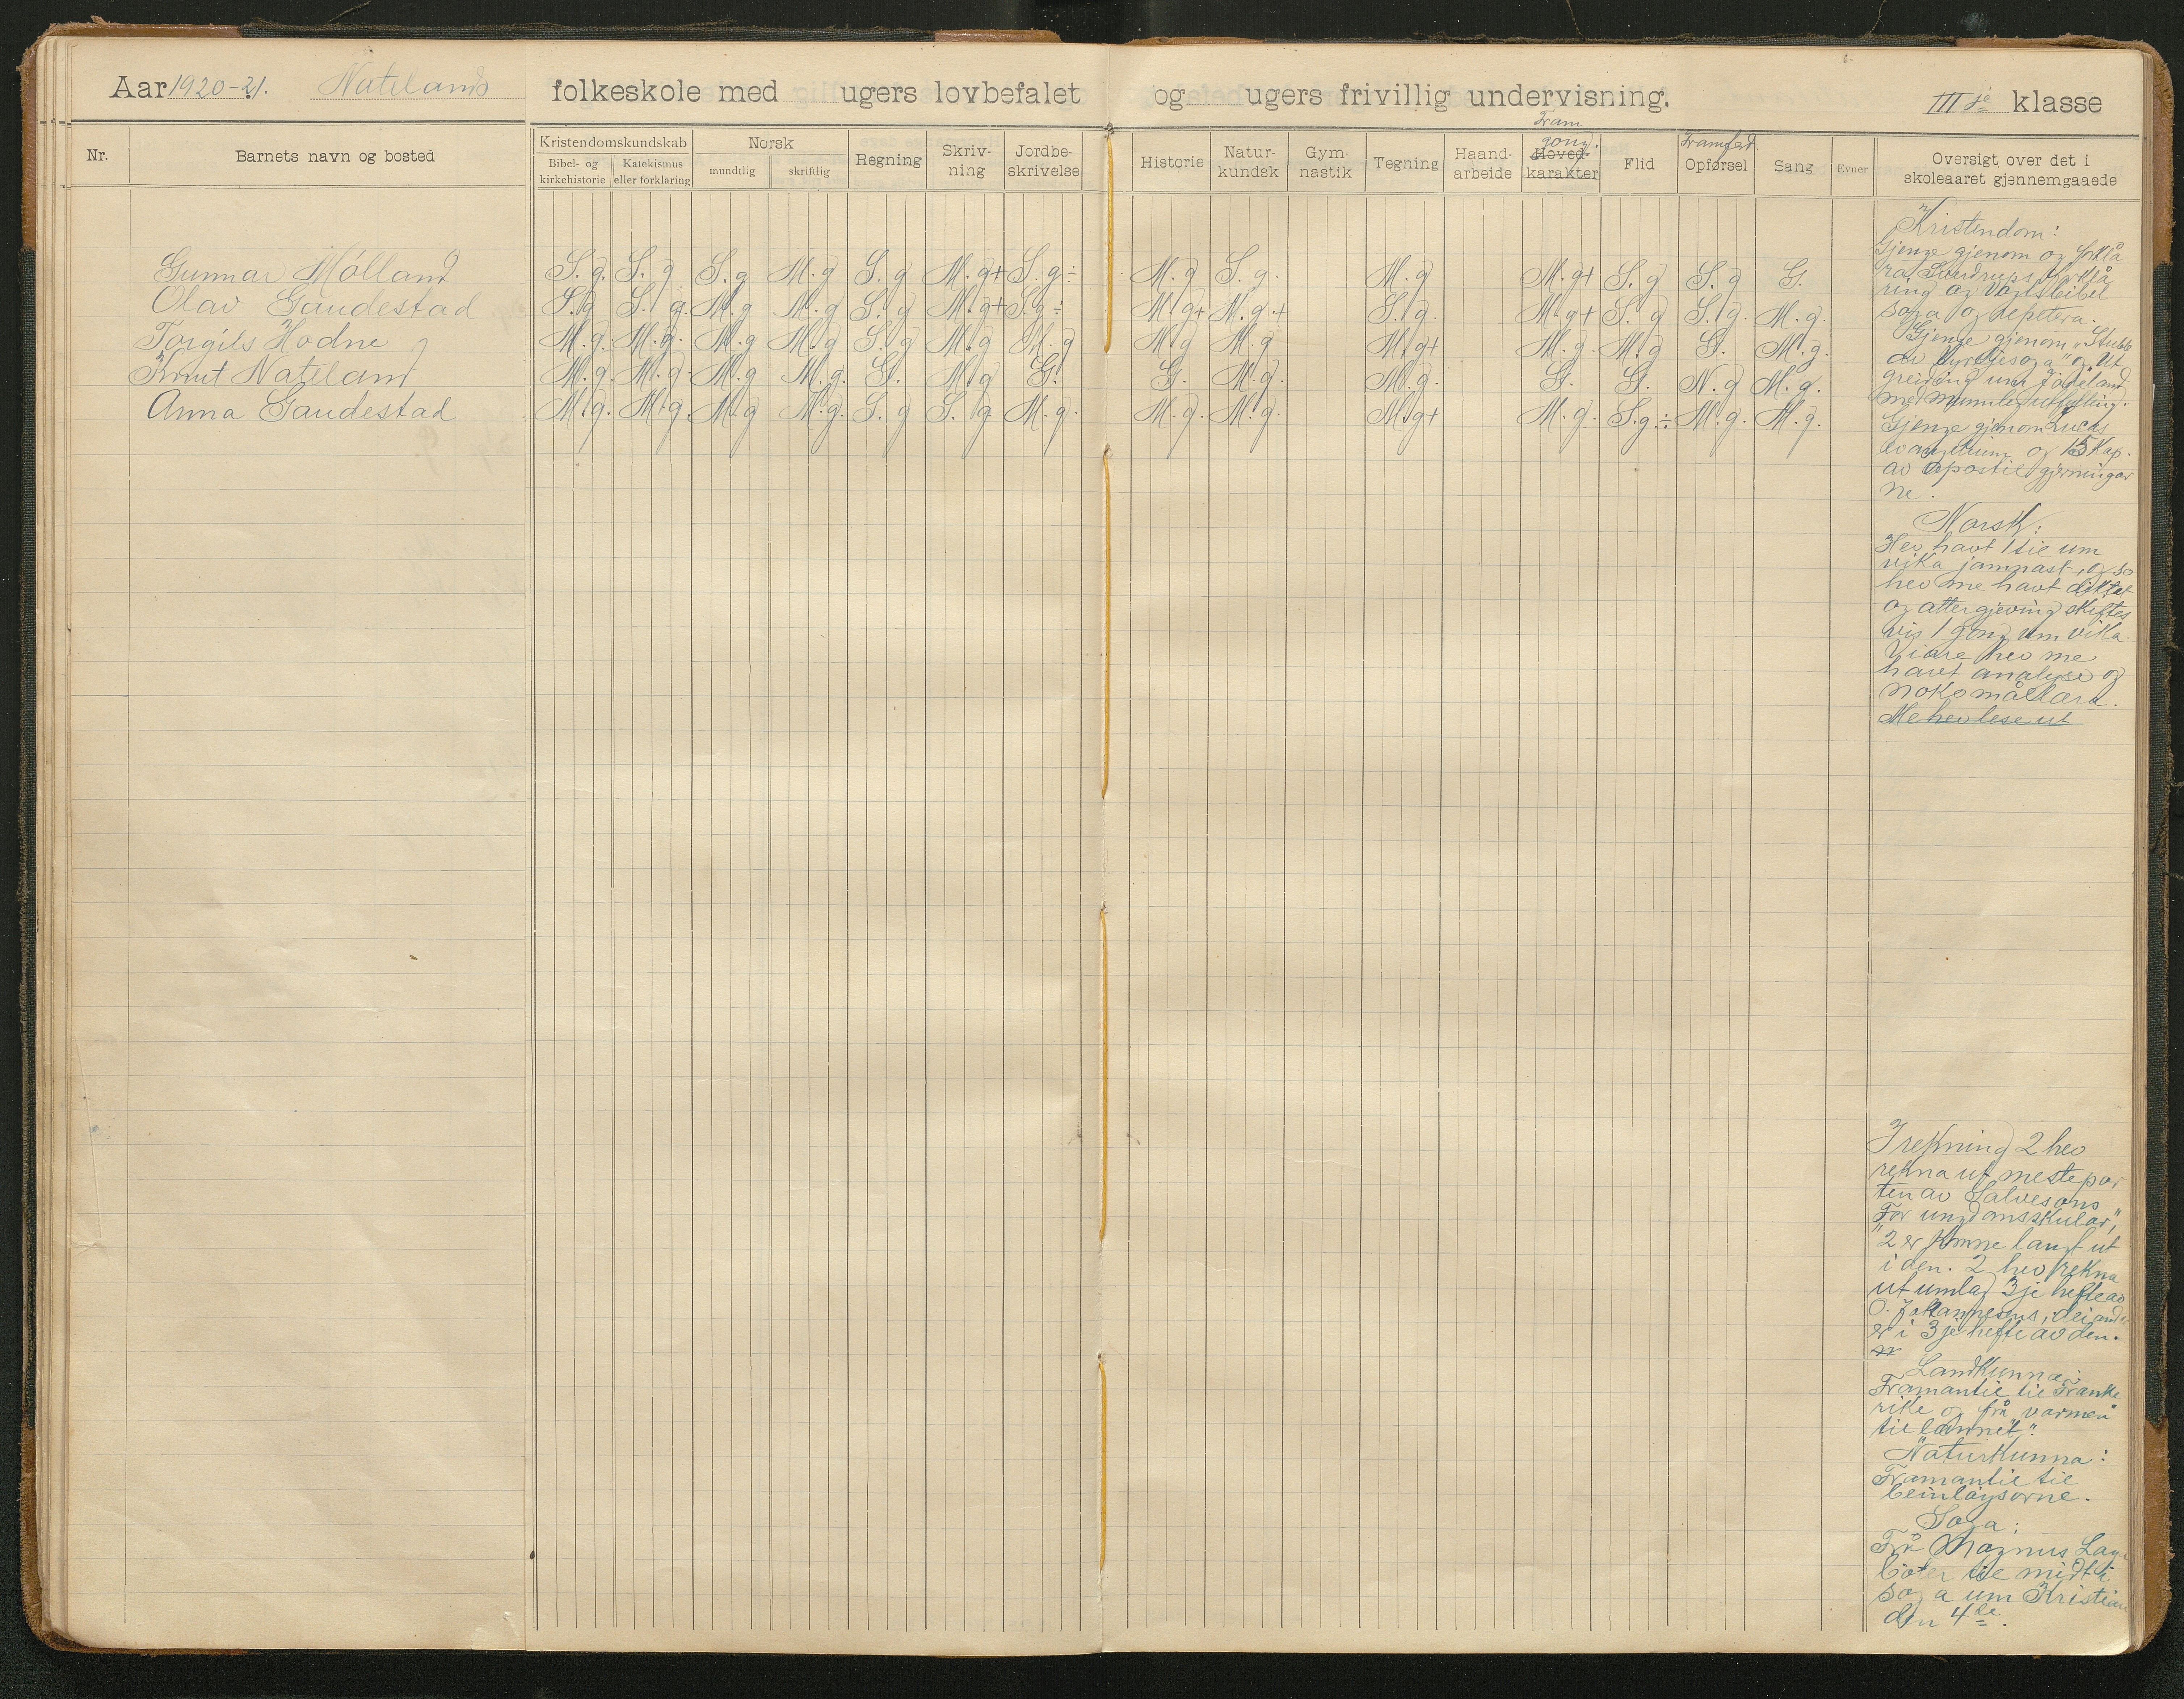 Aar 1920-21. Natelands folkeskole med ugers lovbefalet og ugers frivillig undervisning. III je klasse
Nr.
Barnets navn og bosted
Kristendomskundskab
Bibel- og kirkehistorie
Katekismus eller forklaring
Norsk
mundtlig
skriftlig
Regning
Skriv-
ning
Jordbe-
skrivelse
Historie
Natur-
kundsk
Gym-
nastik
Tegning
Haand-
arbeide
Fram
gong.
Hoved-
karakter
Flid
Framferd
Opførsel
Sang
Evner
Oversigt over det i
skoleaaret gjennemgaaede
Gunnar Mölland S.g. S.g S.g M.g S.g M.g+ S.g÷ M.g S.g. M.g M.g+ S.g S.g G.
Olav Gaudestad S.g S.g. M.g M.g S.g M.g+ S.g÷ M.g+ M.g+ S.g. M.g+ S.g S.g. M.g.
Torgils Hodne M.g. M.g. M.g M.g S.g M.g M.g M.g M.g M.g+ M.g. M.g G. M.g.
Knut Nateland M.g. M.g. M.g M.g. G. M.g G. G. M.g. M.g. G. G. N.g M.g.
Anna Gaudestad M.g. M.g. M.g M.g. S.g S.g M.g. M.g. M.g. M.g+ M.g. S.g.÷ M.g. M.g.
Kristendom:
Gjenge gjenom og forklå
ra Sverdrups forklå
ring og Vogtsbibel
soga og repetera.
Gjenge gjenom "Stubb
av kyrkjesoga" og "Ut
greiding um Jødeland
med munnleg utfylling.
Gjenge gjenom Lucas
evangelium og 15 Kap.
av apostelgjerningar
ne.
Norsk:
Hev havt 1 stil um
vika jamnast, og so
hev me havt diktat
og attergjeving skiftes
vis 1 gong um vika.
Vidare hev me
havt analyse og
noko mållæra.
Me hev lese ut
I rekning 2 hev
rekna ut mestepar
ten av Salvesons
"For ungdomsskular,"
2 er komne langt ut
i den. 2 hev rekna
ut umlag 3je hefte av
O. Johannesens, dei andr
er i 3je hefte av den.
Landkunna:
Framantil til Franke
rike og frå "varmen
til lannet".
Naturkunna:
Framantil til
beinlaysorne.
Soga:
Frå Magnus Laga
böter til midt i
soga um Kristian
den 4de.